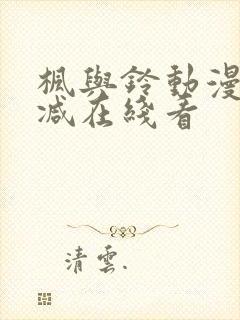 楓與鈴動漫
减在綫看
清雲.